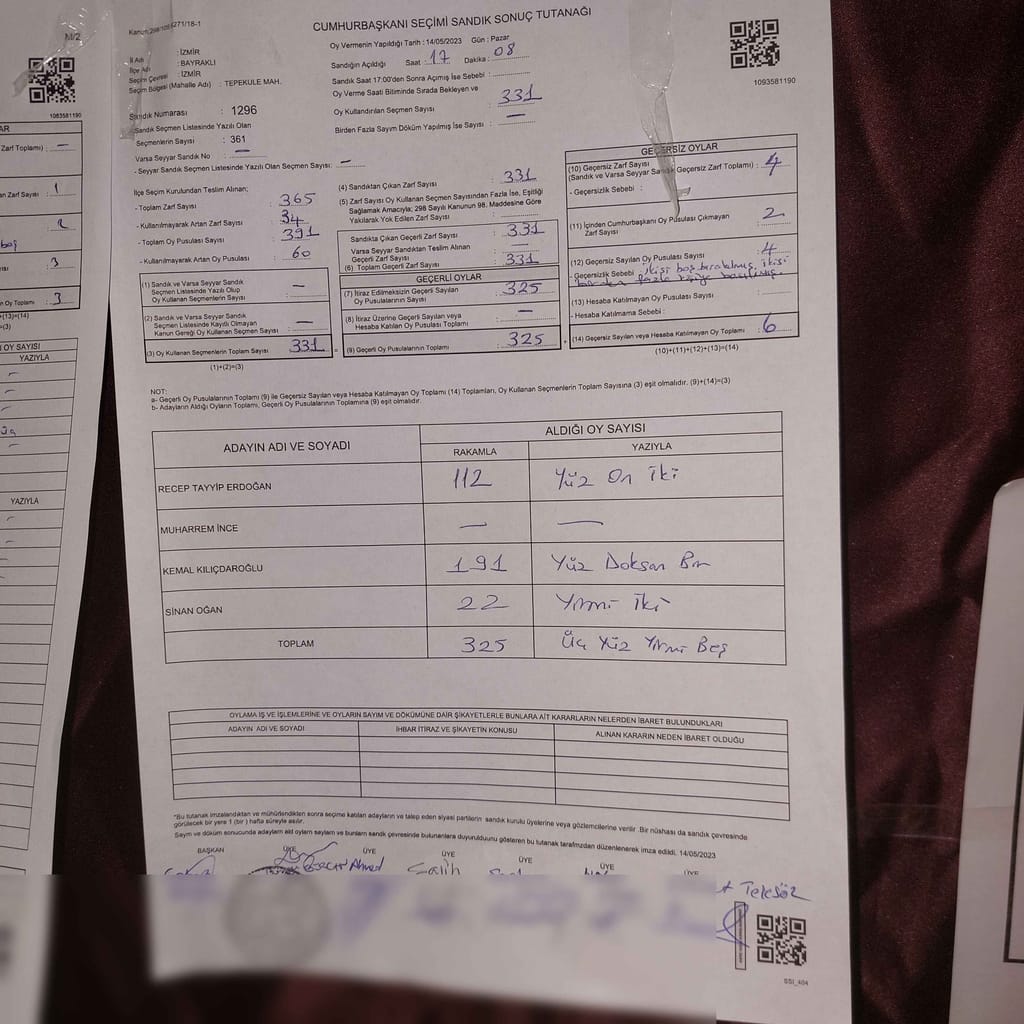 Kanun:298/108 /271/18-1
CUMHURBAŞKANI SEÇİMİ SANDIK SONUÇ TUTANAĞI
M/2
İl Adı : İZMİR
İlçe Adı : BAYRAKLI
Seçim Çevresi : İZMİR
Seçim Bölgesi (Mahalle Adı) : TEPEKULE MAH.
Oy Vermenin Yapıldığı Tarih : 14/05/2023 Gün : Pazar
Sandığın Açıldığı Saat : 17 Dakika : 08
Sandık Saat 17:00'den Sonra Açılmış İse Sebebi :
Oy Verme Saati Bitiminde Sırada Bekleyen ve
Oy Kullandırılan Seçmen Sayısı : 331
Birden Fazla Sayım Döküm Yapılmış İse Sayısı : —
1093581190
1093581190
Sandık Numarası : 1296
Sandık Seçmen Listesinde Yazılı Olan
Seçmenlerin Sayısı : 361
Varsa Seyyar Sandık No : —
- Seyyar Sandık Seçmen Listesinde Yazılı Olan Seçmen Sayısı: —
İlçe Seçim Kurulundan Teslim Alınan;
- Toplam Zarf Sayısı : 365
- Kullanılmayarak Artan Zarf Sayısı : 34
- Toplam Oy Pusulası Sayısı : 391
- Kullanılmayarak Artan Oy Pusulası : 60
(1) Sandık ve Varsa Seyyar Sandık
Seçmen Listesinde Yazılı Olup
Oy Kullanan Seçmenlerin Sayısı : —
(2) Sandık ve Varsa Seyyar Sandık
Seçmen Listesinde Kayıtlı Olmayan
Kanun Gereği Oy Kullanan Seçmenlerin Sayısı : —
(3) Oy Kullanan Seçmenlerin Toplam Sayısı : 331
(1)+(2)=(3)
(4) Sandıktan Çıkan Zarf Sayısı : 331
(5) Zarf Sayısı Oy Kullanan Seçmen Sayısından Fazla İse, Eşitliği
Sağlamak Amacıyla; 298 Sayılı Kanunun 98. Maddesine Göre
Yakılarak Yok Edilen Zarf Sayısı : —
Sandıkta Çıkan Geçerli Zarf Sayısı : 331
Varsa Seyyar Sandıktan Teslim Alınan
Geçerli Zarf Sayısı : —
(6) Toplam Geçerli Zarf Sayısı : 331
GEÇERLİ OYLAR
(7) İtiraz Edilmeksizin Geçerli Sayılan
Oy Pusulalarının Sayısı : 325
(8) İtiraz Üzerine Geçerli Sayılan veya
Hesaba Katılan Oy Pusulası Toplamı : —
(9) Geçerli Oy Pusulalarının Toplamı : 325
GEÇERSİZ OYLAR
(10) Geçersiz Zarf Sayısı
(Sandık ve Varsa Seyyar Sandık Geçersiz Zarf Toplamı) : 4
- Geçersizlik Sebebi :
(11) İçinden Cumhurbaşkanı Oy Pusulası Çıkmayan
Zarf Sayısı : 2
(12) Geçersiz Sayılan Oy Pusulası Sayısı : 4
- Geçersizlik Sebebi : ikisi boş bırakılmış ikisi
birden fazla kişiye basılmış.
(13) Hesaba Katılmayan Oy Pusulası Sayısı :
- Hesaba Katılmama Sebebi :
(14) Geçersiz Sayılan veya Hesaba Katılmayan Oy Toplamı : 6
(10)+(11)+(12)+(13)=(14)
NOT:
a- Geçerli Oy Pusulalarının Toplamı (9) ile Geçersiz Sayılan veya Hesaba Katılmayan Oy Toplamı (14) Toplamları, Oy Kullanan Seçmenlerin Toplam Sayısına (3) eşit olmalıdır. (9)+(14)=(3)
b- Adayların Aldığı Oyların Toplamı, Geçerli Oy Pusulalarının Toplamına (9) eşit olmalıdır.
ADAYIN ADI VE SOYADI ALDIĞI OY SAYISI
RAKAMLA YAZIYLA
RECEP TAYYİP ERDOĞAN 112 Yüz On İki
MUHARREM İNCE — —
KEMAL KILIÇDAROĞLU 191 Yüz Doksan Bir
SİNAN OĞAN 22 Yirmi İki
TOPLAM 325 Üç Yüz Yirmi Beş
OYLAMA İŞ VE İŞLEMLERİNE VE OYLARIN SAYIM VE DÖKÜMÜNE DAİR ŞİKAYETLERLE BUNLARA AİT KARARLARIN NELERDEN İBARET BULUNDUKLARI
ADAYIN ADI VE SOYADI İHBAR İTİRAZ VE ŞİKAYETİN KONUSU ALINAN KARARIN NEDEN İBARET OLDUĞU
*Bu tutanak imzalandıktan ve mühürlendikten sonra seçime katılan adayların ve talep eden siyasi partilerin sandık kurulu üyelerine veya gözlemcilerine verilir. Bir nüshası da sandık çevresinde
görülecek bir yere 1 (bir) hafta süreyle asılır.
Sayım ve döküm sonucunda adayların ad oyların sayıları ve bunların sandık çevresinde bulunanlara duyurulduğunu gösteren bu tutanak tarafımızdan düzenlenerek imza edildi. 14/05/2023
BAŞKAN ÜYE ÜYE ÜYE ÜYE ÜYE ÜYE
Ahmed Salih
Telesöz
SSI_404
Zarf Toplamı) : —
Zarf Sayısı : 1
2
boş
3
Oy Toplamı : 3
+(13)=(14)
=(3)
OY SAYISI
YAZIYLA
YAZIYLA